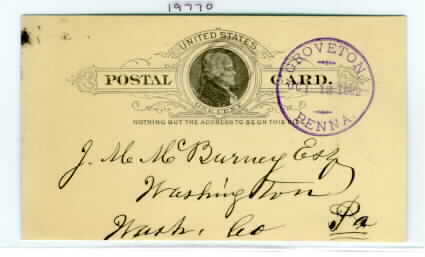 19770
UNITED STATES
POSTAL CARD.
ONE CENT
NOTHING BUT THE ADDRESS TO BE ON THIS SIDE
GROVETON
OCT 18
PENNA.
J. M. McBurney Esq
Washington
Wash. Co Pa